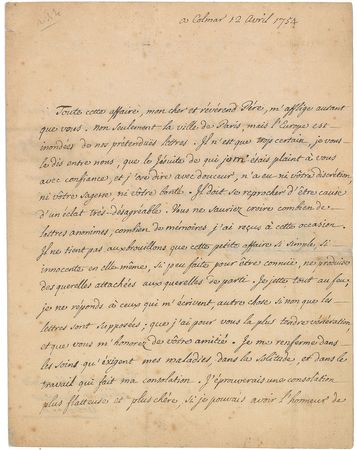 a Colmar 12 avril 1754
Toute cette affaire, mon cher et révérend Pére, m'afflige autant
que vous. non seulement la ville de Paris, mais l'Europe est
inondées de nos prétendues lettres. Il n'est que trop certain, je vous
le dis entre nous, que le Jésuite de qui je m'étais plaint à vous
avec confiance, et j'ose dire avec douceur, n'a eu ni votre discrétion,
ni votre sagesse ni votre bonté. Il doit se reprocher d'être cause
d'un éclat très-désagréable. Vous ne sauriez croire combien de
lettres anonimes, combien de mémoires, j'ai reçus à cette occasion.
Il ne tient pas aux brouillons que cette petite affaire si simple, si
innocente en elle-même, si peu faite pour être connüe, ne produise
des querelles attachées aux querelles de parti. Je jette tout au feu;
je ne réponds à ceux qui m'écrivent, autre chose si non que les
lettres sont supposées, que j'ai pour vous la plus tendre vénération
et que vous m'honorez de votre amitié. Je me renferme dans
les soins qu'exigent mes maladies, dans la solitude, et dans le
travail qui fait ma consolation. J'éprouverais une consolation
plus flatteuse et plus chére, si je pouvais avoir l'honneur de